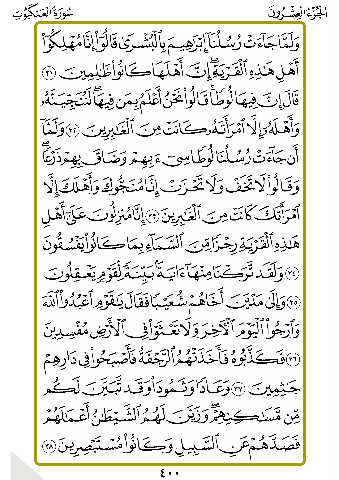 الجزء العشرون سورة العنكبوت
وَلَمَّا جَآءَتْ رُسُلُنَآ إِبْرَٰهِيمَ بِٱلْبُشْرَىٰ قَالُوٓا۟ إِنَّا مُهْلِكُوٓا۟
أَهْلِ هَٰذِهِ ٱلْقَرْيَةِ ۖ إِنَّ أَهْلَهَا كَانُوا۟ ظَٰلِمِينَ ﴿٣١﴾
قَالَ إِنَّ فِيهَا لُوطًا ۚ قَالُوا۟ نَحْنُ أَعْلَمُ بِمَن فِيهَا ۖ لَنُنَجِّيَنَّهُۥ
وَأَهْلَهُۥٓ إِلَّا ٱمْرَأَتَهُۥ كَانَتْ مِنَ ٱلْغَٰبِرِينَ ﴿٣٢﴾ وَلَمَّآ
أَن جَآءَتْ رُسُلُنَا لُوطًا سِىٓءَ بِهِمْ وَضَاقَ بِهِمْ ذَرْعًا ۖ
وَقَالُوا۟ لَا تَخَفْ وَلَا تَحْزَنْ ۖ إِنَّا مُنَجُّوكَ وَأَهْلَكَ إِلَّا
ٱمْرَأَتَكَ كَانَتْ مِنَ ٱلْغَٰبِرِينَ ﴿٣٣﴾ إِنَّا مُنزِلُونَ عَلَىٰٓ أَهْلِ
هَٰذِهِ ٱلْقَرْيَةِ رِجْزًا مِّنَ ٱلسَّمَآءِ بِمَا كَانُوا۟ يَفْسُقُونَ
﴿٣٤﴾ وَلَقَد تَّرَكْنَا مِنْهَآ ءَايَةًۢ بَيِّنَةً لِّقَوْمٍ يَعْقِلُونَ
﴿٣٥﴾ وَإِلَىٰ مَدْيَنَ أَخَاهُمْ شُعَيْبًا فَقَالَ يَٰقَوْمِ ٱعْبُدُوا۟ ٱللَّهَ
وَٱرْجُوا۟ ٱلْيَوْمَ ٱلْءَاخِرَ وَلَا تَعْثَوْا۟ فِى ٱلْأَرْضِ مُفْسِدِينَ
﴿٣٦﴾ فَكَذَّبُوهُ فَأَخَذَتْهُمُ ٱلرَّجْفَةُ فَأَصْبَحُوا۟ فِى دَارِهِمْ
جَٰثِمِينَ ﴿٣٧﴾ وَعَادًا وَثَمُودَا۟ وَقَد تَّبَيَّنَ لَكُم
مِّن مَّسَٰكِنِهِمْ ۖ وَزَيَّنَ لَهُمُ ٱلشَّيْطَٰنُ أَعْمَٰلَهُمْ
فَصَدَّهُمْ عَنِ ٱلسَّبِيلِ وَكَانُوا۟ مُسْتَبْصِرِينَ ﴿٣٨﴾
٤٠٠